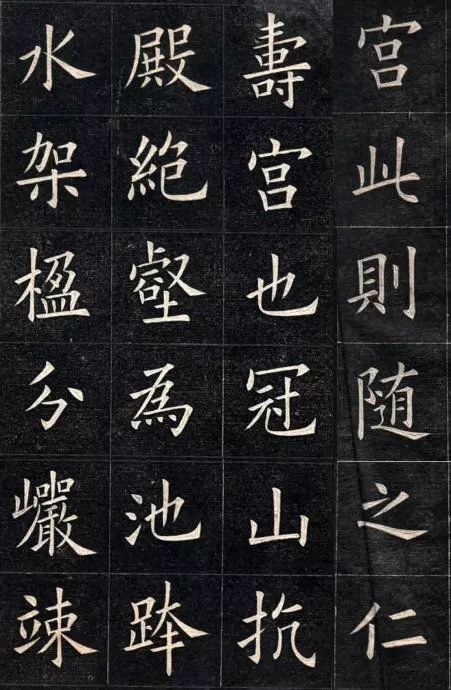 宫此則随之仁
壽宫也冠山抗
殿絶壑為池跨
水架楹分巖竦